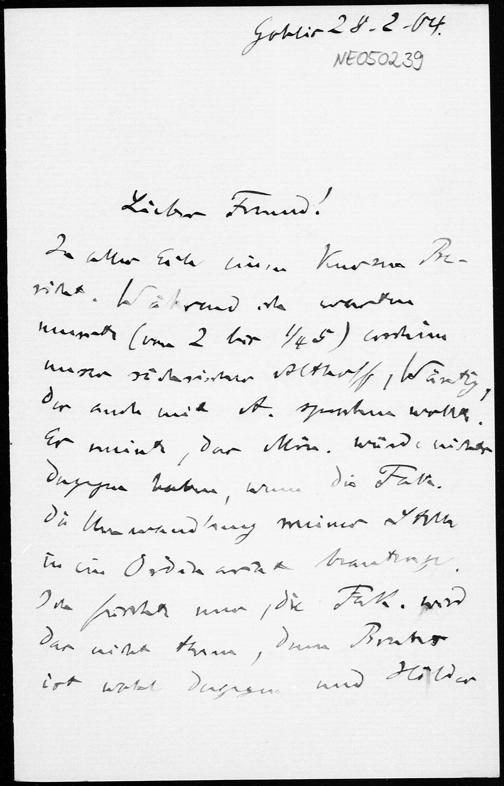 Gohlis 28-2-04.
NE050239
Lieber Freund!
In aller Eile einen kurzen Be-
richt. Während ich warten
musste (von 2 bis 1/4 5) erschien
unser sächsischer Althoff, Wäntig,
der auch mit A. sprechen wollte.
Er meinte, das Min. würde nichts
dagegen haben, wenn die Fak.
die Umwandlung meiner Stelle
in ein Ordinariat beantrage.
Ich fürchte nur, die Fak. wird
das nicht thun, denn Bruns
ist wohl dagegen und Hölder